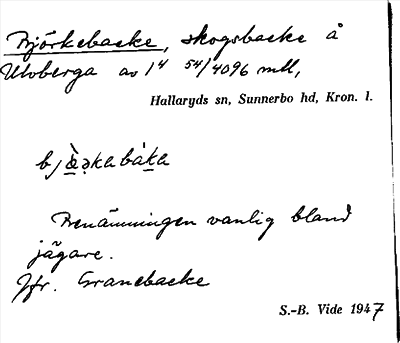 Björkebacke, skogsbacke å
Ulvberga av 1⁴ 54/4096 mtl,
Hallaryds sn, Sunnerbo hd, Kron. l.
Benämningen vanlig bland
jägare.
Jfr. Granebacke
S.-B. Vide 1947